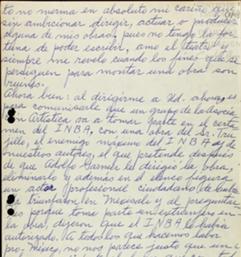 to no merma en absoluto mi cariño que
sin ambicionar dirigir, actuar o producir
alguna de mis obras, pues no tengo la for-
tuna de poder escribir, amo el teatro y
siempre me revelo cuando los fines que se
persiguen para montar una obra son
Ahora bien al dirigirme a Ud. ahora es
para comunicarle que un grupo de la
Artística va a tomar parte en el certa
men del I.N.B.A. con una obra del Sr. Tru-
jillo, el enemigo máximo del INBA y de
nuestros autores, el que pretende después
de que Adolfo dirigió la obra,
eliminarlo y además en el elenco
un actor profesional ciudadano
triunfaron en Mexicali y al preguntar
es porque tome parte
la obra, dijeron que el INBA lo había
autorizado. No todos los que hacemos labor
pro, México, no nos parece justo que un